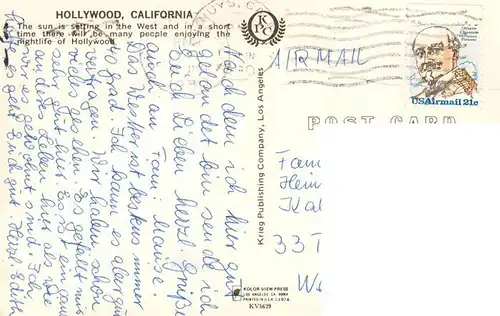 HOLLYWOOD, CALIFORNIA
The sun is setting in the West and in a short
time there will be many people enjoying the
nightlife of Hollywood.
KPC
AIR MAIL
Octave
Chanute
Aviation
Pioneer
USAirmail 21c
POST CARD
Krieg Publishing Company, Los Angeles
Nach dem ich hier gut
gelandet bin sende ich
Euch Lieben herzl Grüße
auch an Fami
Das Wetter ist bestens immer
30 grd. Ich kann es aber gut
vertragen. Wir haben schon
vieles gesehen. Es gefällt mir
sehr gut hier. Es ist ein ganz
anderes Leben hier als wie
wir es gewohnt sind. Ich
Euch gut Herzl Edith
Fam
Hein
Kal
33
We
KOLOR VIEW PRESS
LOS ANGELES, CA
PRINTED IN U.S.A.
KV5629